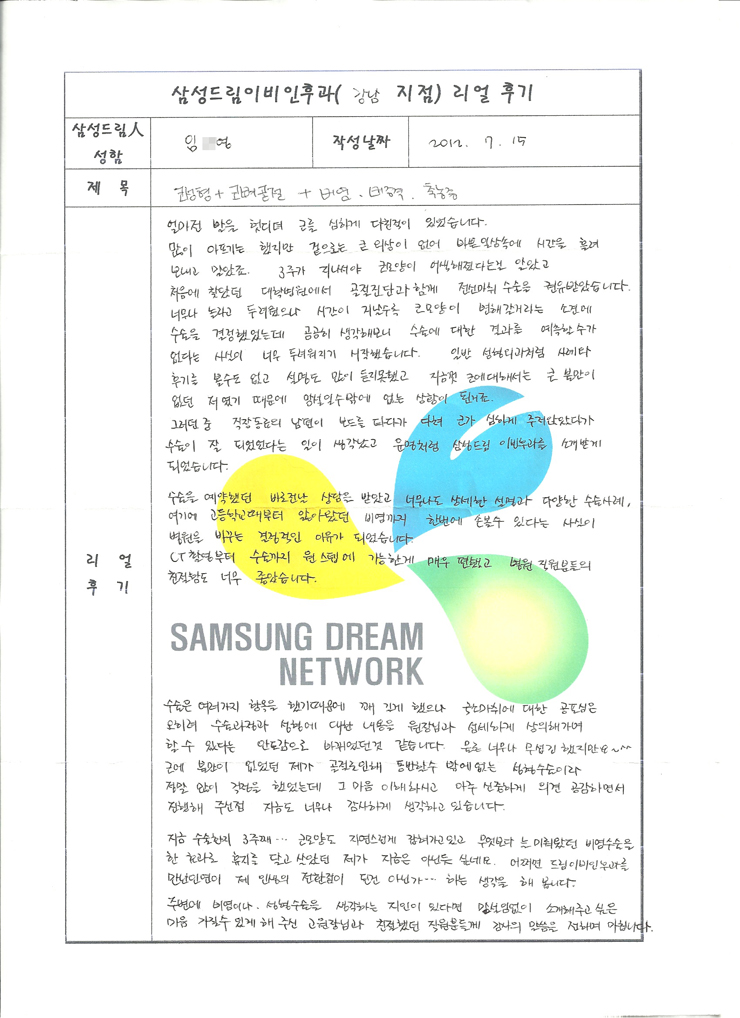 삼성드림이비인후과( 강남 지점) 리얼 후기
삼성드림人
성함
임 영
작성날짜
2012. 7. 15
제 목
코성형 + 코뼈골절 + 비염. 비중격. 축농증
리 얼
후 기
얼마전 발을 헛디뎌 코를 심하게 다친적이 있었습니다.
많이 아프기는 했지만 겉으로는 큰 외상이 없어 바쁜일상속에 시간을 흘려
보내고 말았죠. 3주가 지나서야 코모양이 어색해졌다는걸 알았고
처음에 찾았던 대학병원에서 골절진단과 함께 전신마취 수술을 권유받았습니다.
너무나 놀라고 두려웠으나 시간이 지날수록 코모양이 변해갈거라는 소견에
수술을 결정했었는데 곰곰히 생각해보니 수술에 대한 결과를 예측할수가
없다는 사실이 너무 두려워지기 시작했습니다. 일반 성형외과처럼 사례나
후기를 볼수도 없고 설명도 많이 듣지못했고 지금껏 코에대해서는 큰 불만이
없던 저였기 때문에 망설일수밖에 없는 상황이 된거죠.
그러던 중 직장동료의 남편이 보드를 타다가 다쳐 코가 심하게 주저앉았다가
수술이 잘 되었었다는 일이 생각났고 운명처럼 삼성드림 이비인후과를 소개받게
되었습니다.
수술을 예약했던 바로전날 상담을 받았고 너무나도 상세한 설명과 다양한 수술사례,
여기에 고등학교때부터 앓아왔던 비염까지 한번에 손볼수 있다는 사실이
병원을 바꾸는 결정적인 이유가 되었습니다.
CT촬영부터 수술까지 원스텝에 가능한게 매우 편했고 병원 직원분들의
친절함도 너무 좋았습니다.
SAMSUNG DREAM
NETWORK
수술은 여러가지 항목을 했기때문에 꽤 길게 했으나 국소마취에 대한 공포심은
오히려 수술과정과 성형에 대한 내용을 원장님과 섬세하게 상의해가며
할 수 있다는 안도감으로 바뀌었던것 같습니다. 물론 너무나 무섭긴 했지만요~~^
코에 불만이 없었던 제가 골절로인해 동반할수 밖에없는 성형수술이라
정말 많이 걱정을 했었는데 그 마음 이해하시고 아주 신중하게 의견 공감하면서
진행해 주신점 지금도 너무나 감사하게 생각하고 있습니다.
지금 수술한지 3주째… 코모양도 자연스럽게 잡혀가고있고 무엇보다 늘 미뤄왔던 비염수술을
한 결과로 휴지를 달고 살았던 제가 지금은 아닌듯 싶네요. 어쩌면 드림이비인후과를
만난인연이 제 인생의 전환점이 된건 아닌가… 하는 생각을 해 봅니다.
주변에 비염이나. 성형수술을 생각하는 지인이 있다면 망설임없이 소개해주고 싶은
마음 가질수 있게 해 주신 고원장님과 친절했던 직원분들께 감사의 말씀을 전하며 마칩니다.